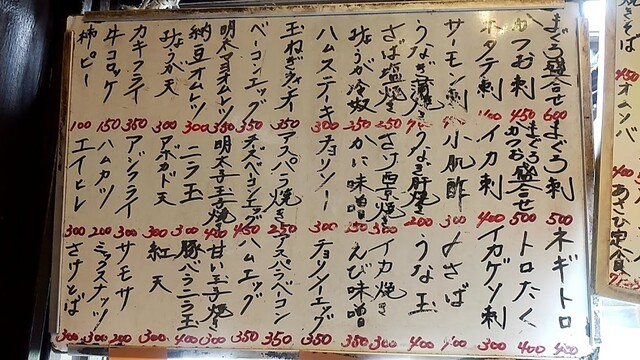 まぐろ盛合せ 600
かつお刺 450
ホタテ刺 400
サーモン刺
うなぎ蒲焼き
さば塩焼き 250
みょうが冷奴 250
ハムステーキ 300
玉ねぎ 350
ベーコンエッグ 350
明太マヨオムレツ 350
納豆オムレツ 300
みょうが天 300
カキフライ 350
牛コロッケ 150
柿ピー 100
まぐろ刺 500
まぐろかつお盛合せ 500
イカ刺 400
小肌酢 300
うなぎ肝焼き 200
さけ西京焼き 300
かに味噌 350
チョリソー 300
アスパラ焼き 250
チーズベーコンエッグ 450
明太子玉子焼き 400
ニラ玉 300
アボカド天 300
アジフライ 300
ハムカツ 200
エイヒレ 300
ネギトロ 400
トロたく 400
イカゲソ刺 300
〆さば 400
うな玉 400
イカ焼き 300
えび味噌 350
チョリソエッグ 350
アスパラベーコン 350
ハムエッグ 350
甘い玉子焼き 300
豚バラニラ玉 400
紅天 300
サモサ 200
ミックスナッツ 300
さけとば 300
焼きそば
450
オムソバ